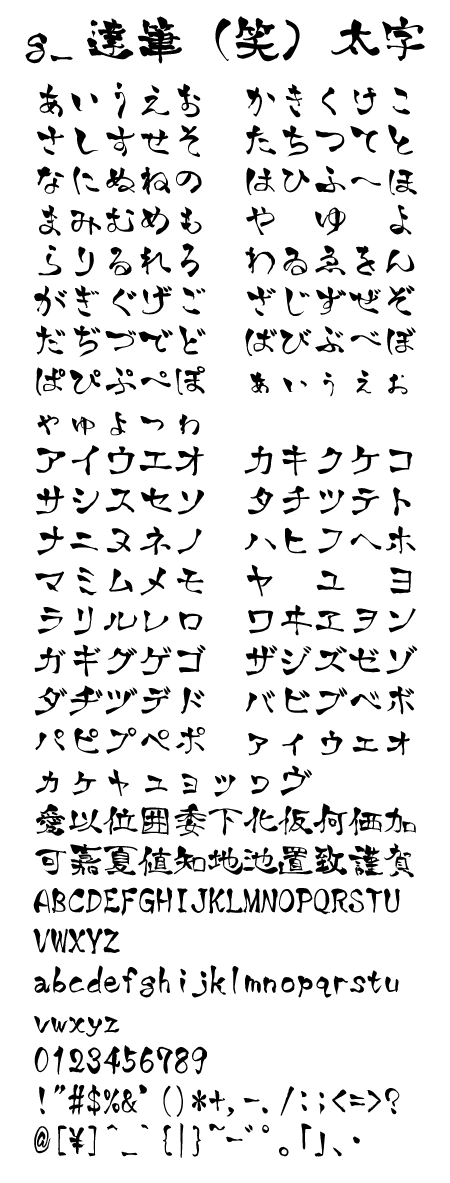 g_達筆（笑）太字
あいうえお かきくけこ
さしすせそ たちつてと
なにぬねの はひふへほ
まみむめも や ゆ よ
らりるれろ わゐゑをん
がぎぐげご ざじずぜぞ
だぢづでど ばびぶべぼ
ぱぴぷぺぽ ぁぃぅぇぉ
ゃゅょっゎ
アイウエオ カキクケコ
サシスセソ タチツテト
ナニヌネノ ハヒフヘホ
マミムメモ ヤ ユ ヨ
ラリルレロ ワヰヱヲン
ガギグゲゴ ザジズゼゾ
ダヂヅデド バビブベボ
パピプペポ ァィゥェォ
ヵヶャュョッヮヴ
愛以位囲委下化仮何価加
可嘉夏値知地池置致謹賀
ABCDEFGHIJKLMNOPQRSTU
VWXYZ
abcdefghijklmnopqrstu
vwxyz
0123456789
!"#$%&'()*+,-./:;<=>?
@[¥]^_`{|}~-゛゜。「」、・